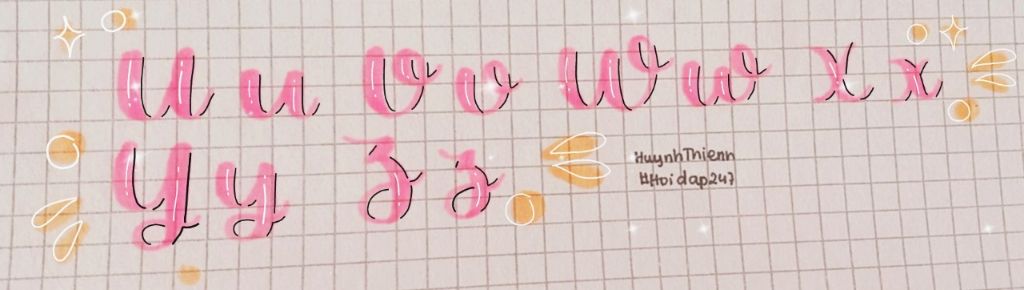 U u V v W w X x
Y y Z z
HuynhThienn
#Hoidap247